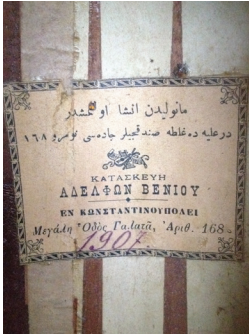 مانوليدن انشا اولنمشدر
در عليه ده غلطه صندقجيلر جاده سی نومرو ١٦٨
ΚΑΤΑΣΚΕΥΗ
ΑΔΕΛΦΩΝ ΒΕΝΙΟΥ
ΕΝ ΚΩΝΣΤΑΝΤΙΝΟΥΠΟΛΕΙ
Μεγάλη Ὁδὸς Γαλατᾶ, Ἀριθ. 168
1907